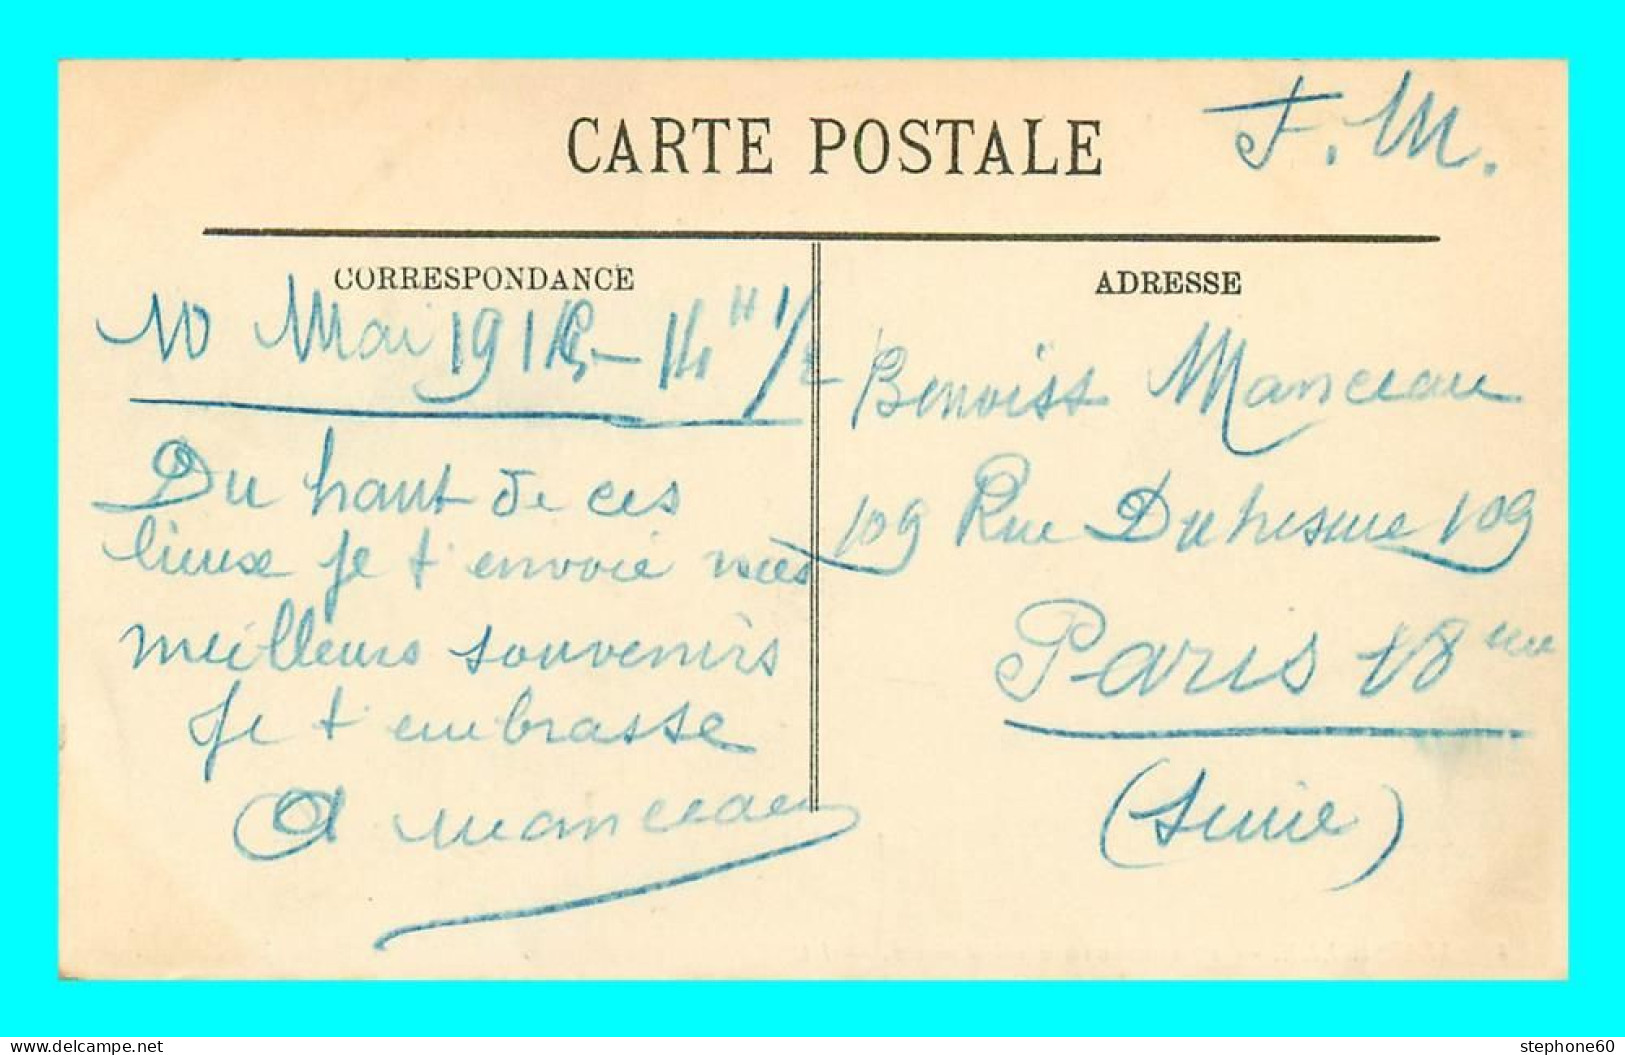 CARTE POSTALE
F. M.
CORRESPONDANCE
10 Mai 1915 - 14 H 1/2
Du haut de ces
lieux je t envoie mes
meilleurs souvenirs
Je t embrasse
A manceau
ADRESSE
Benoist Manceau
109 Rue Duhesme 109
Paris 18 eme
(Seine)
stephone60
delcampe.net